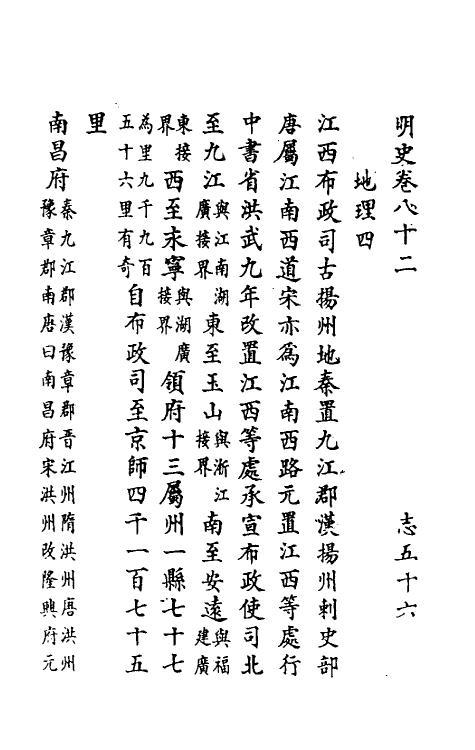 明史卷八十二 志五十六
地理四
江西布政司古揚州地秦置九江郡漢揚州刺史部
唐屬江南西道宋亦爲江南西路元置江西等處行
中書省洪武九年改置江西等處承宣布政使司北
至九江與江南湖廣接界東至玉山與浙江接界南至安遠與福建廣
東接界西至永寧與湖廣接界領府十三屬州一縣七十七
為里九千九百五十六里有奇自布政司至京師四千一百七十五
里
南昌府秦九江郡漢豫章郡晉江州隋洪州唐洪州豫章郡南唐曰南昌府宋洪州改隆興府元